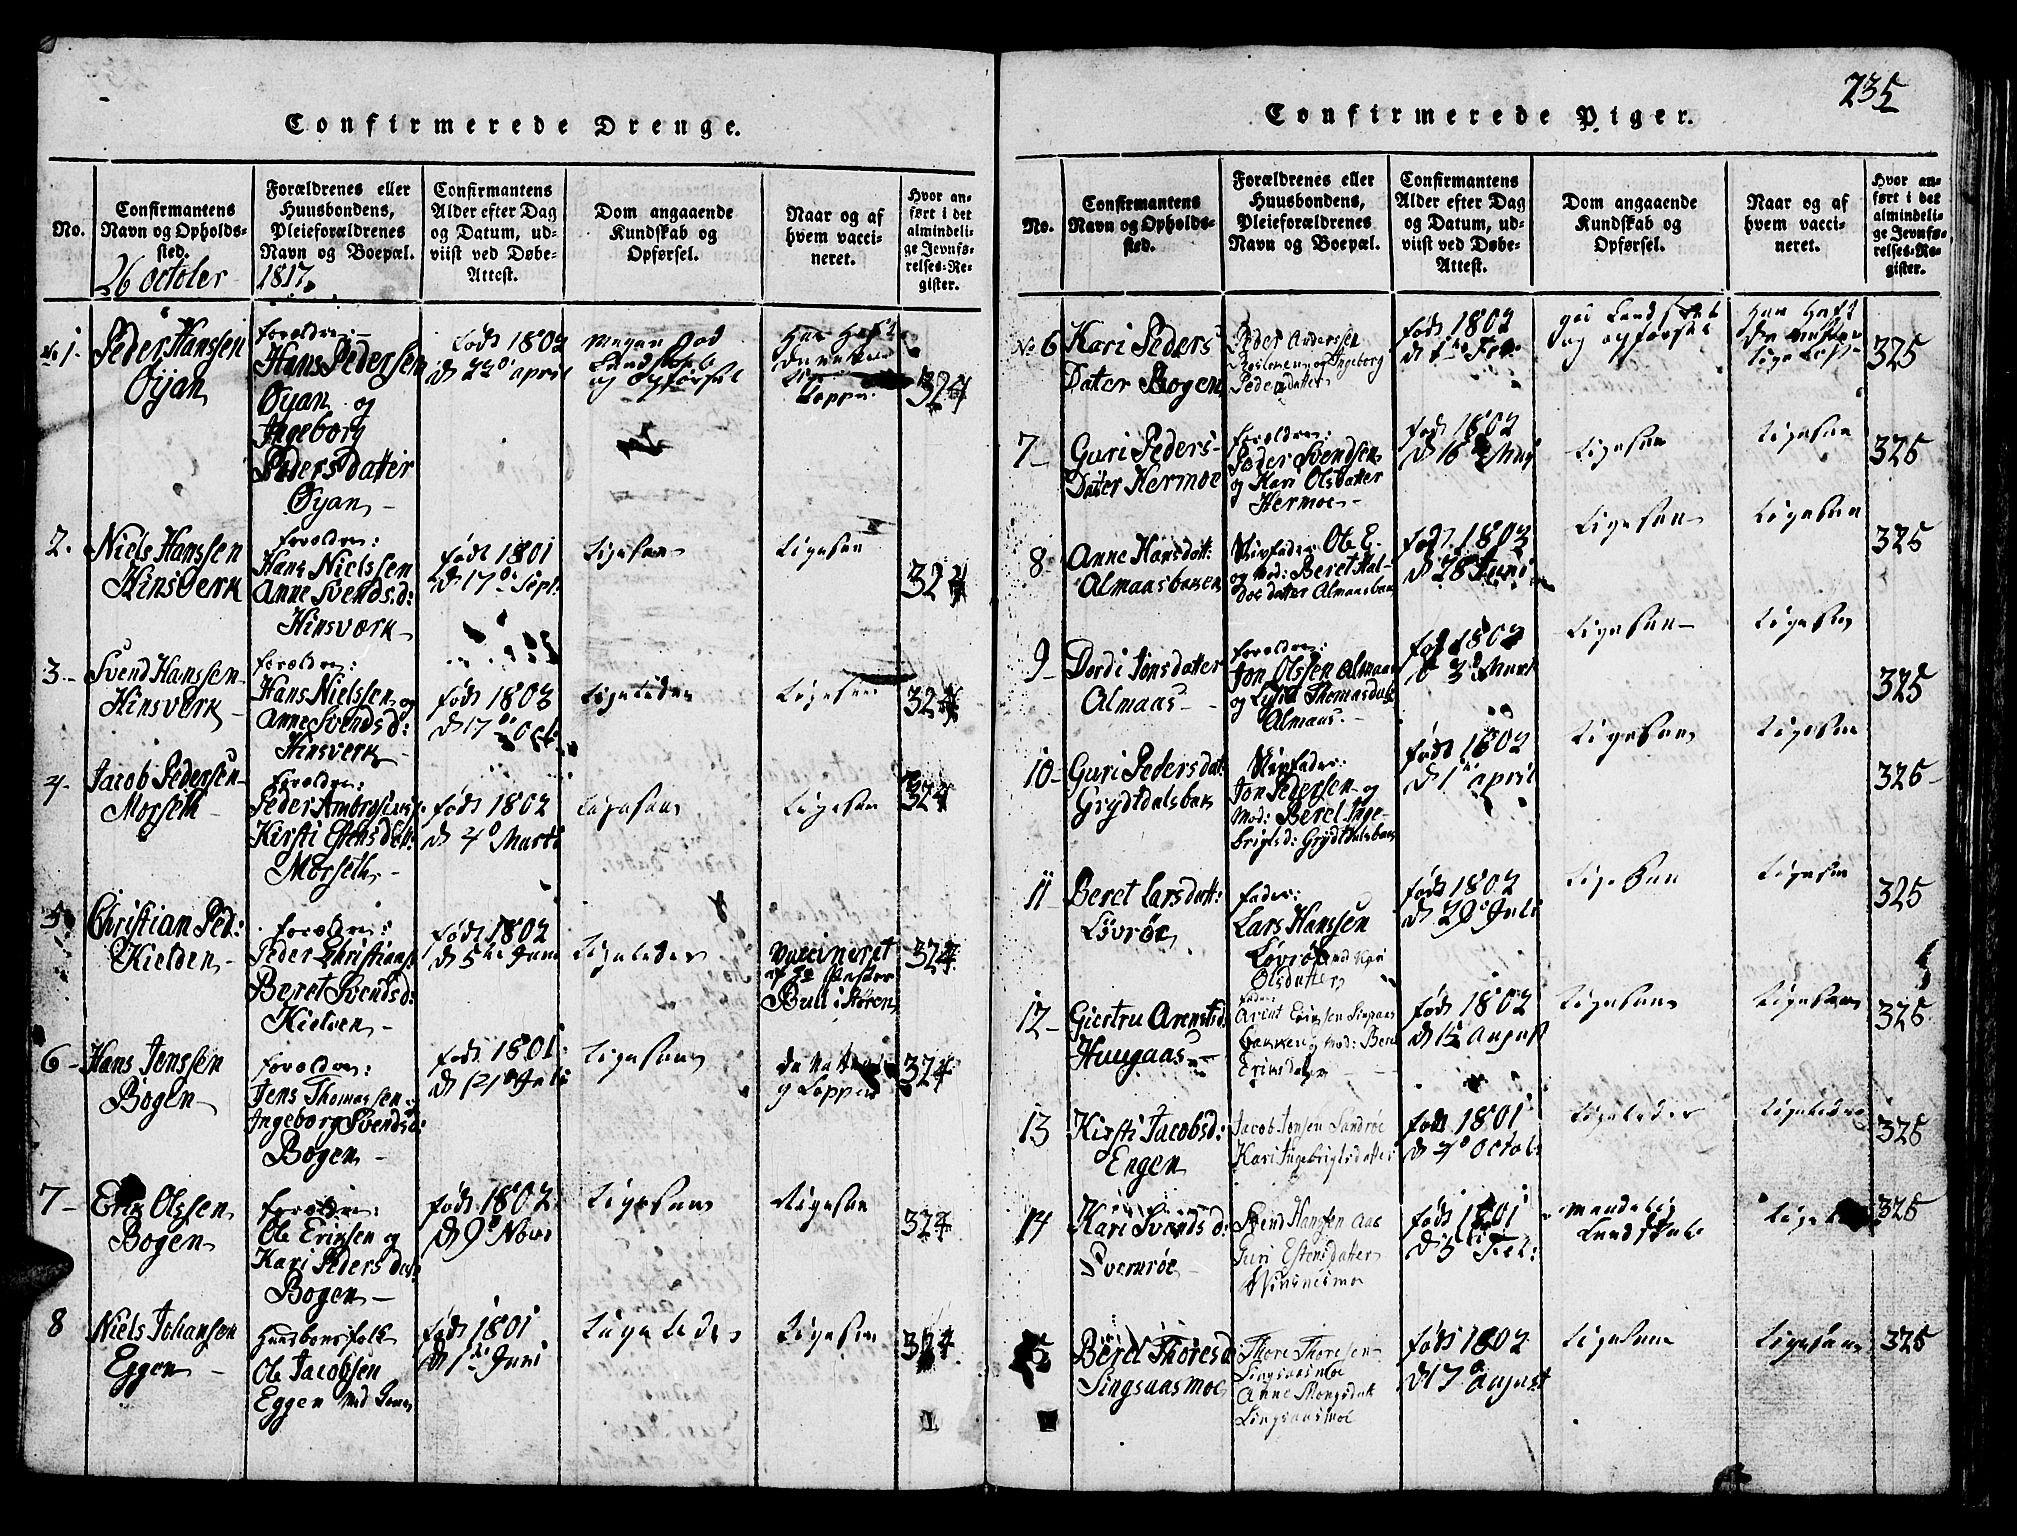 235
Confirmerede Drenge.
No.
Confirmantens
Navn og Opholds-
sted.
Forældrenes eller
Huusbondens,
Pleieforældrenes
Navn og Boepæl.
Confirmantens
Alder efter Dag
og Datum, ud-
viist ved Døbe-
Attest.
Dom angaaende
Kundskab og
Opførsel.
Naar og af
hvem vacci-
neret.
Hvor an-
ført i det
almindeli-
ge Jevnfø-
relses-Re-
gister.
26 october 1817.
1.
Peder Hanssen
Öyan
forældre:
Hans Pedersen
Öyan og
Ingeborg
Pedersdatter
Öyan
født 1802
d 22de april
Megen god
Kundskab
og opførsel
324
2.
Niels Hanssen
Hinsverk
forældre:
Hans Nielssen
Anne Svends.d:
Hinsværk
født 1801
d 17de Sept:
Ligesaa
Ligesaa
324
3.
Svend Hanssen
Hinsverk
forældre:
Hans Nielssen og
Anne Svends d:
Hinsverk
født 1803
d 17de Oct:
Ligeledes
Ligesaa
324
4.
Jacob Pedersen
Morseth
forældre:
Peder Ambrosius:
Kirsti Estens dat:
Morseth
født 1802
d 4de Marti
Ligesaa
Ligesaa
324
5
Christian Ped:
Kielden
forældre:
Peder Christians:
Beret Svends d:
Kielden
født 1802
d 5te Juni
Ligeledes
Vaccineret
af Hr Pastor
Bull i Støren
324
6
Hans Jenssen
Bogen
forældre:
Jens Thomassen
Ingeborg Svends d:
Bogen
født 1801
d 21de Juli
Ligesaa
324
7
Erik Olssen
Bogen
forældre:
Ole Eriksen og
Kari Peders dat:
Bogen
født 1802
d 9de Nov:
Ligesaa
Ligesaa
324
8
Niels Johansen
Eggen
Huusbonsfolk
Ole Jacobsen
Eggen med Kone
født 1801
d 1te Juni
Ligeledes
Ligesaa
324
Confirmerede Piger.
No.
Confirmantens
Navn og Opholds-
sted.
Forældrenes eller
Huusbondens,
Pleieforældrenes
Navn og Boepæl.
Confirmantens
Alder efter Dag
og Datum, ud-
viist ved Døbe-
Attest.
Dom angaaende
Kundskab og
Opførsel.
Naar og af
hvem vacci-
neret.
Hvor an-
ført i det
almindeli-
ge Jevnfø-
relses-Re-
gister.
No 6
Kari Peders
Dater Bogen
Peder Anderssen
og Ingeborg
Pedersdatter
født 1802
325
7
Guri Peders-
Dater Hermoe
forældre:
Peder Svendsen
og Kari Olsdatter
Hermoe
født 1802
d 16de Maj
Ligesaa
Ligesaa
325
8
Anne Hansdatt:
Almaasbaken
Stivfader: Ole E.
og mod: Beret Hal-
dosdatter Almaasbak
født 1803
d 28 Juni
Ligesaa
Ligesaa
325
9
Dordi Jonsdatter
Almaas
forældre:
Jon Olssen Almaas
og Thomasdat
Almaas
født 1803
d 3de Mart
Ligesaa
Ligesaa
325
10
Guri Pedersdat:
Grydtdalsbak
Stivfader:
Jon Pedersen og
Mod: Beret Inge-
brigtsd: Grydtdalsbak
født 1802
d 1te april
Ligesaa
Ligesaa
325
11
Beret Larsdatt:
Lövröe
fader:
Lars Hansen
Lövröe
Olsdatter
født 1802
d 29de Juli
Ligesaa
Ligesaa
325
12
Giertru Arentsd:
Huugaas
Arent Eriksen Singsaas
bakken og mod: Beret
Eriksdater
født 1802
August
Ligesaa
Ligesaa
325
13
Kirsti Jacobsd:
Engen
Jacob Jonsen Sandröe
Kari Ingebrigtsdatter
født 1801
d 4de October
Ligeledes
Ligeledes
325
14
Kari Svends d:
Sværröe
Svend Hansen Aas
Guri Estensdatter
Winsnesmoe
født 1801
d 5te Feb:
Maadelig
Kundskab
325
15
Beret Thoresd
Singsaasmoe
Thore Thoresen
Singsaasmoe
Anne Mongsdat
Singsaasmoe
født 1802
d 17de August
Ligesaa
Ligesaa
325